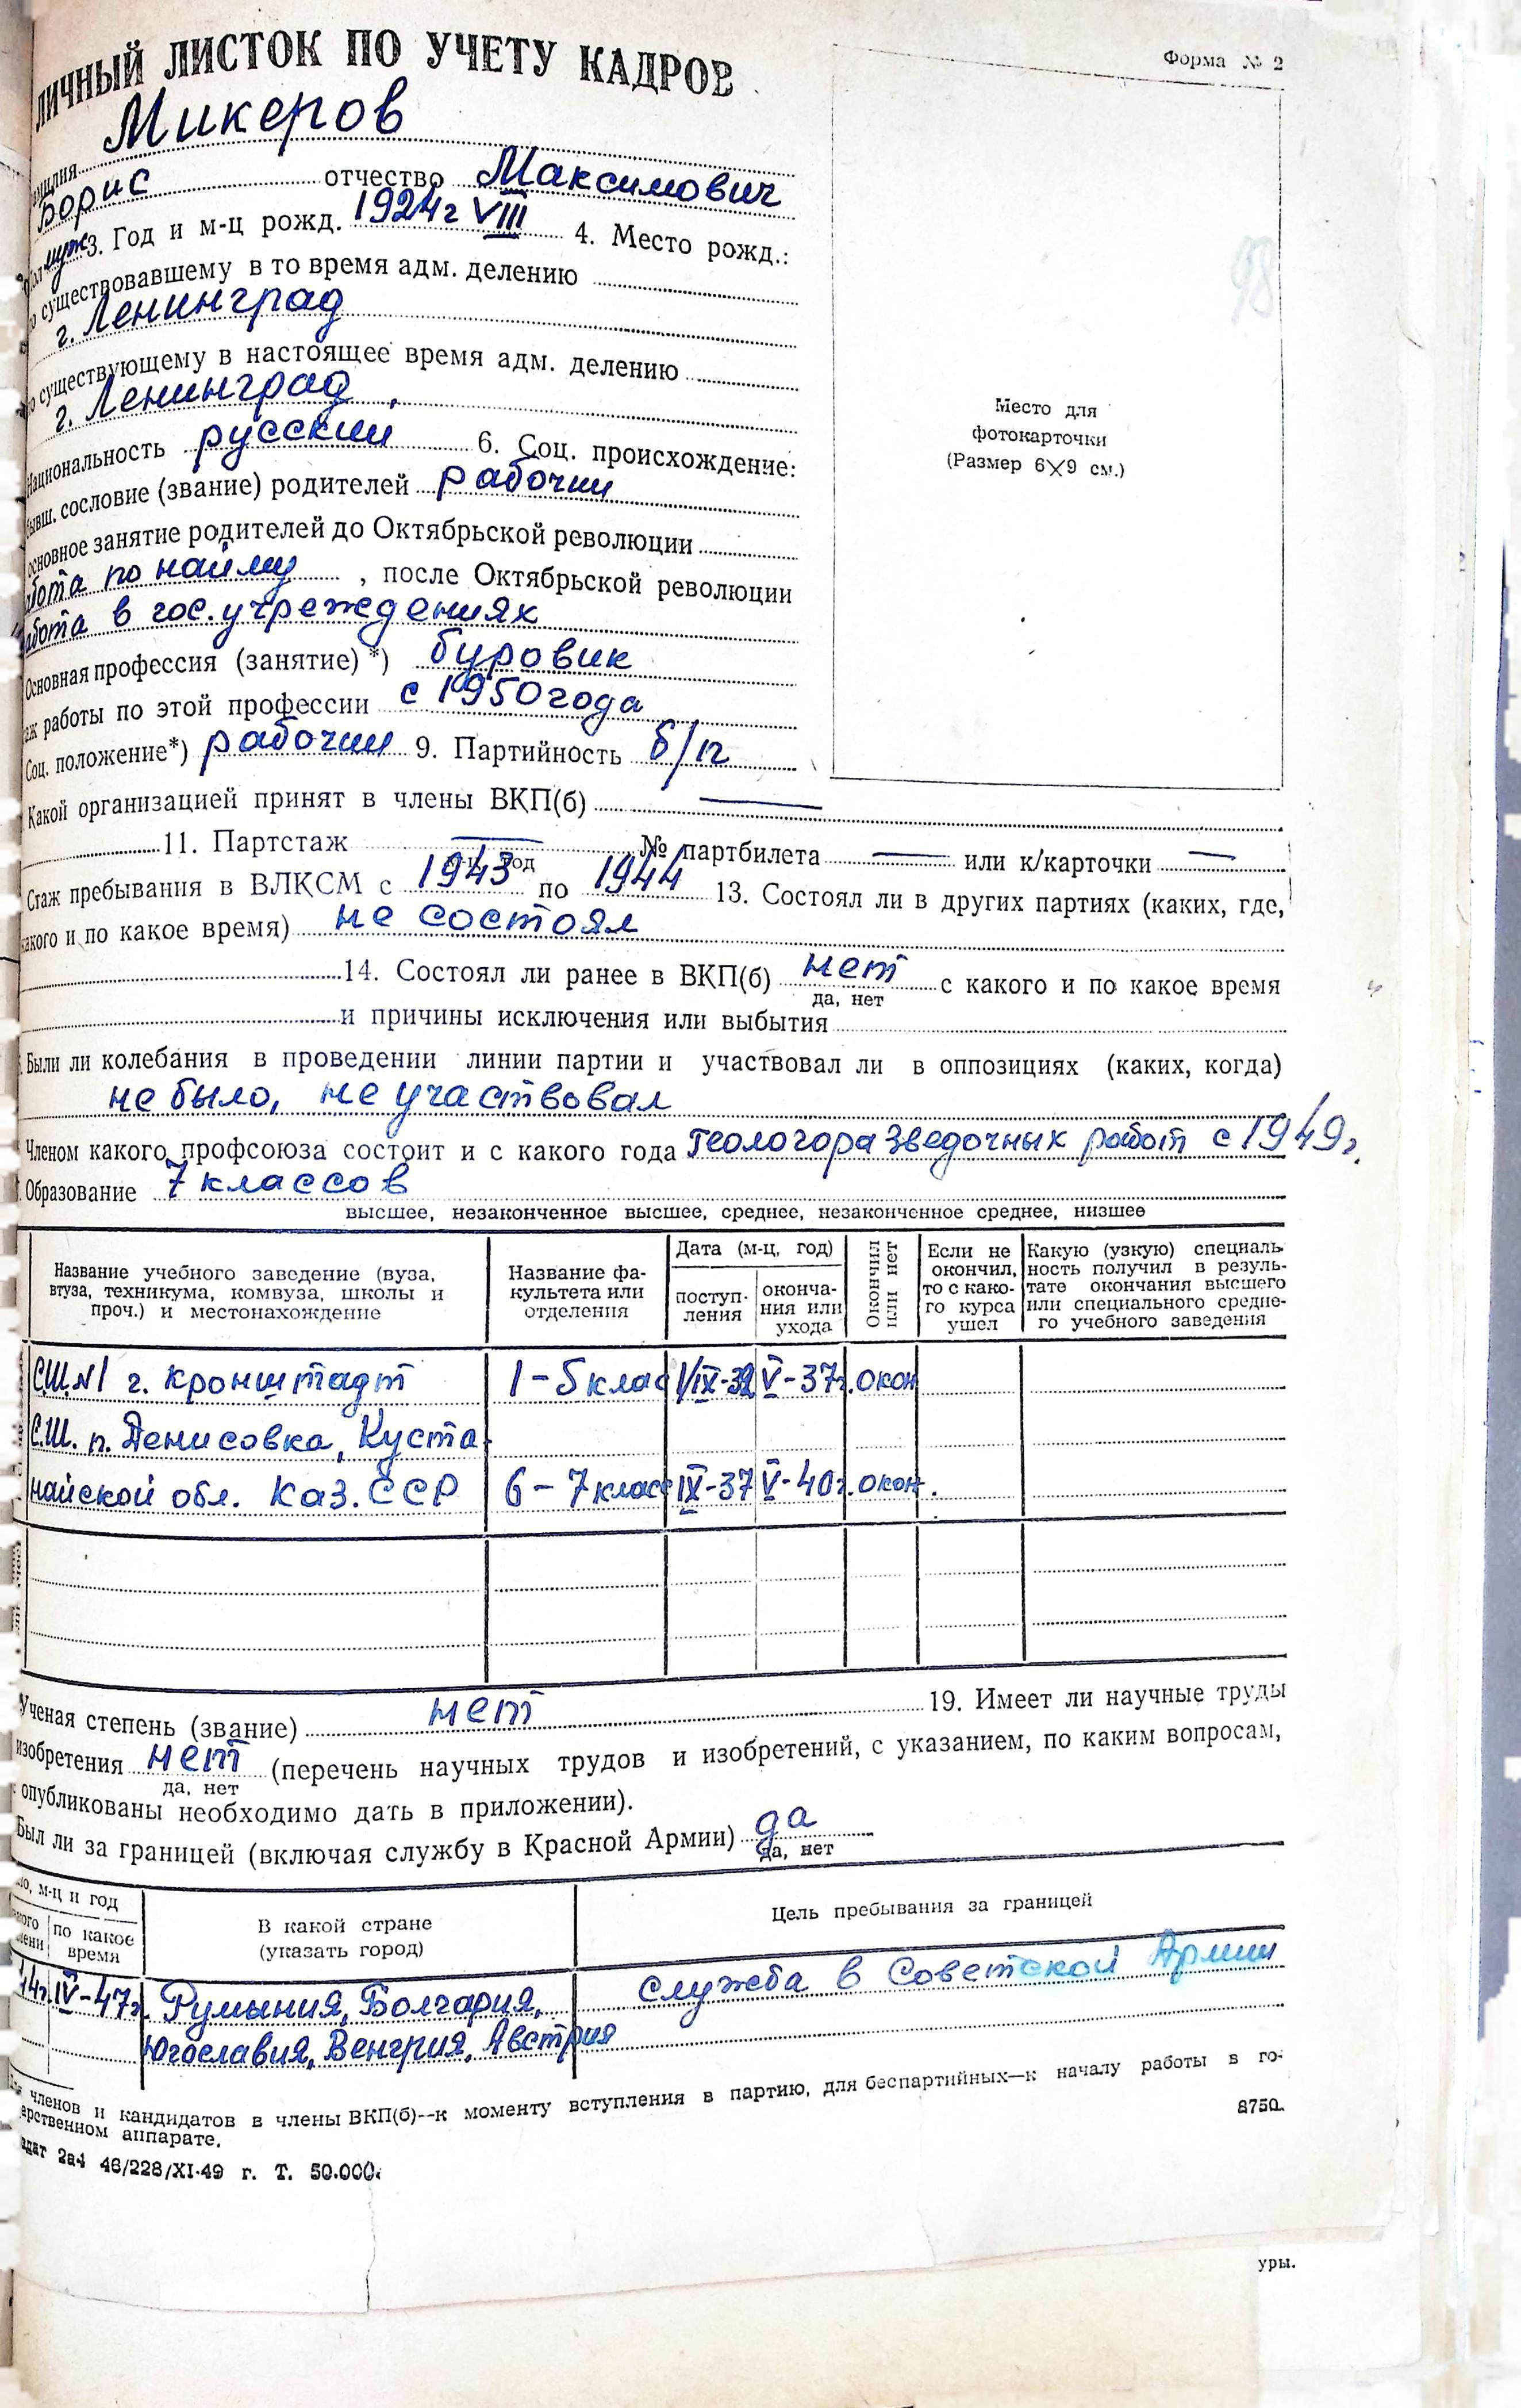 Форма № 2
ЛИЧНЫЙ ЛИСТОК ПО УЧЕТУ КАДРОВ
Микеров
Борис отчество Максимович
муж 3. Год и м-ц рожд. 1924г VIII 4. Место рожд.:
существовавшему в то время адм. делению
г. Ленинград
существующему в настоящее время адм. делению
г. Ленинград
Национальность русский 6. Соц. происхождение:
бывш. сословие (звание) родителей рабочий
основное занятие родителей до Октябрьской революции
работа по найму, после Октябрьской революции
работа в гос. учреждениях
Основная профессия (занятие)*) буровик
аж работы по этой профессии с 1950 года
Соц. положение*) рабочий 9. Партийность б/п
Какой организацией принят в члены ВКП(б) —
11. Партстаж — № партбилета — или к/карточки —
год
Стаж пребывания в ВЛКСМ с 1943 по 1944 13. Состоял ли в других партиях (каких, где,
акого и по какое время) не состоял
14. Состоял ли ранее в ВКП(б) нет с какого и по какое время
да, нет
и причины исключения или выбытия
Были ли колебания в проведении линии партии и участвовал ли в оппозициях (каких, когда)
не было, не участвовал
Членом какого профсоюза состоит и с какого года Геологоразведочных работ с 1949г.
Образование 7 классов
высшее, незаконченное высшее, среднее, незаконченное среднее, низшее
Название учебного заведение (вуза, втуза, техникума, комвуза, школы и проч.) и местонахождение
Название факультета или отделения
Дата (м-ц, год)
поступ-ления
оконча-ния или ухода
Окончил или нет
Если не окончил, то с како-го курса ушел
Какую (узкую) специаль-ность получил в резуль-тате окончания высшего или специального средне-го учебного заведения
С.Ш.№1 г. Кронштадт 1-5 клас 1/IX-32 V-37г. окон
С.Ш. п. Денисовка, Куста-
найской обл. Каз. ССР 6-7 класс IX-37 V-40г. окон.
Ученая степень (звание) нет 19. Имеет ли научные труды
изобретения нет (перечень научных трудов и изобретений, с указанием, по каким вопросам,
да, нет
опубликованы необходимо дать в приложении).
Был ли за границей (включая службу в Красной Армии) да
да, нет
м-ц и год
по какое время
В какой стране (указать город)
Цель пребывания за границей
44г. IV-47г. Румыния, Болгария, служба в Советской Армии
Югославия, Венгрия, Австрия
членов и кандидатов в члены ВКП(б)--к моменту вступления в партию, для беспартийных—к началу работы в го-
арственном аппарате.
2а4 46/228/XI-49 г. Т. 50.000.
8750.
Место для
фотокарточки
(Размер 6×9 см.)
98
уры.